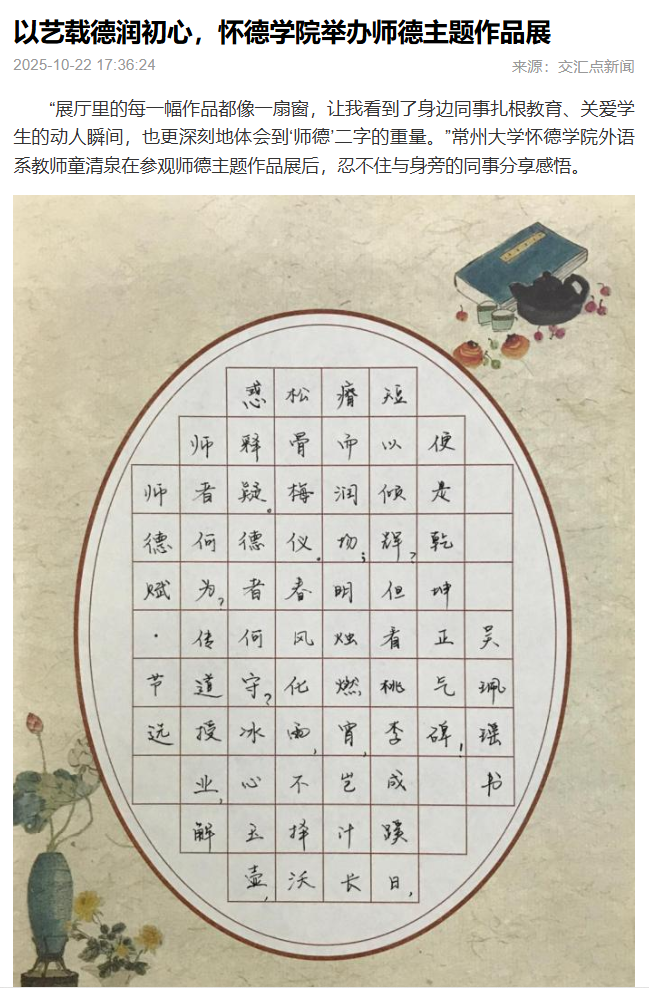 以艺载德润初心，怀德学院举办师德主题作品展
2025-10-22 17:36:24
来源：交汇点新闻
“展厅里的每一幅作品都像一扇窗，让我看到了身边同事扎根教育、关爱学
生的动人瞬间，也更深刻地体会到‘师德’二字的重量。”常州大学怀德学院外语
系教师童清泉在参观师德主题作品展后，忍不住与身旁的同事分享感悟。
师德赋·节选
师者何为？传道授业，解
惑释疑。德者何守？冰心玉壶，
松骨梅仪。春风化雨，不择沃
瘠而润物；明烛燃宵，岂计长
短以倾辉？但看桃李成蹊日，
便是乾坤正气碑！
吴珮瑶书